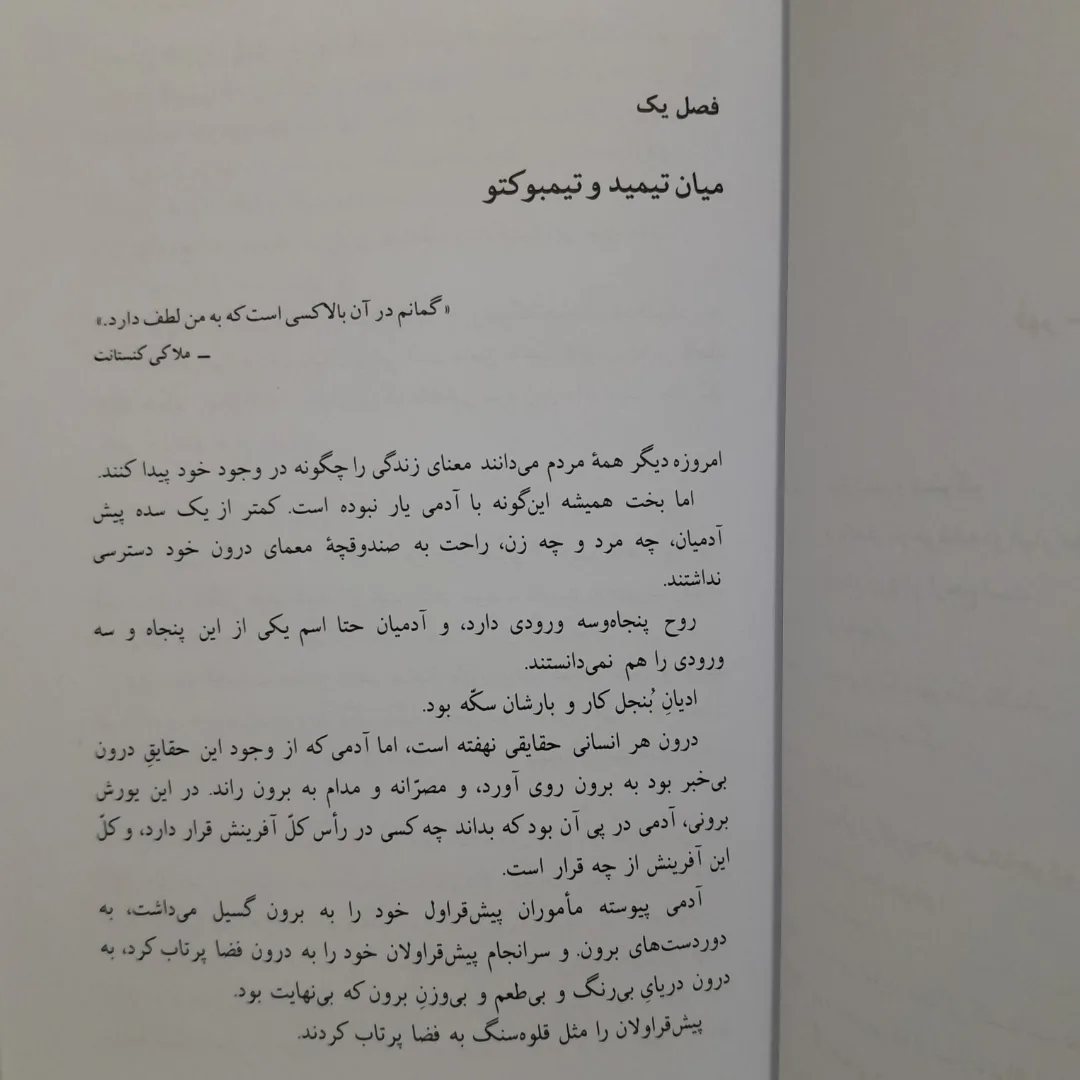 فصل یک
میان تیمید و تیمبوکتو
«گمانم در آن بالا کسی است که به من لطف دارد.»
— ملاکی کنستانت
امروزه دیگر همهٔ مردم می‌دانند معنای زندگی را چگونه در وجود خود پیدا کنند.
اما بخت همیشه این‌گونه با آدمی یار نبوده است. کمتر از یک سده پیش
آدمیان، چه مرد و چه زن، راحت به صندوقچهٔ معمای درون خود دسترسی
نداشتند.
روح پنجاه‌وسه ورودی دارد، و آدمیان حتا اسم یکی از این پنجاه و سه
ورودی را هم نمی‌دانستند.
ادیانِ بُنجل کار و بارشان سکّه بود.
درون هر انسانی حقایقی نهفته است، اما آدمی که از وجود این حقایقِ درون
بی‌خبر بود به برون روی آورد، و مصرّانه و مدام به برون راند. در این یورش
برونی، آدمی در پی آن بود که بداند چه کسی در رأس کلّ آفرینش قرار دارد، و کلّ
این آفرینش از چه قرار است.
آدمی پیوسته مأموران پیش‌قراول خود را به برون گسیل می‌داشت، به
دوردست‌های برون. و سرانجام پیش‌قراولان خود را به درون فضا پرتاب کرد، به
درون دریایِ بی‌رنگ و بی‌طعم و بی‌وزنِ برون که بی‌نهایت بود.
پیش‌قراولان را مثل قلوه‌سنگ به فضا پرتاب کردند.